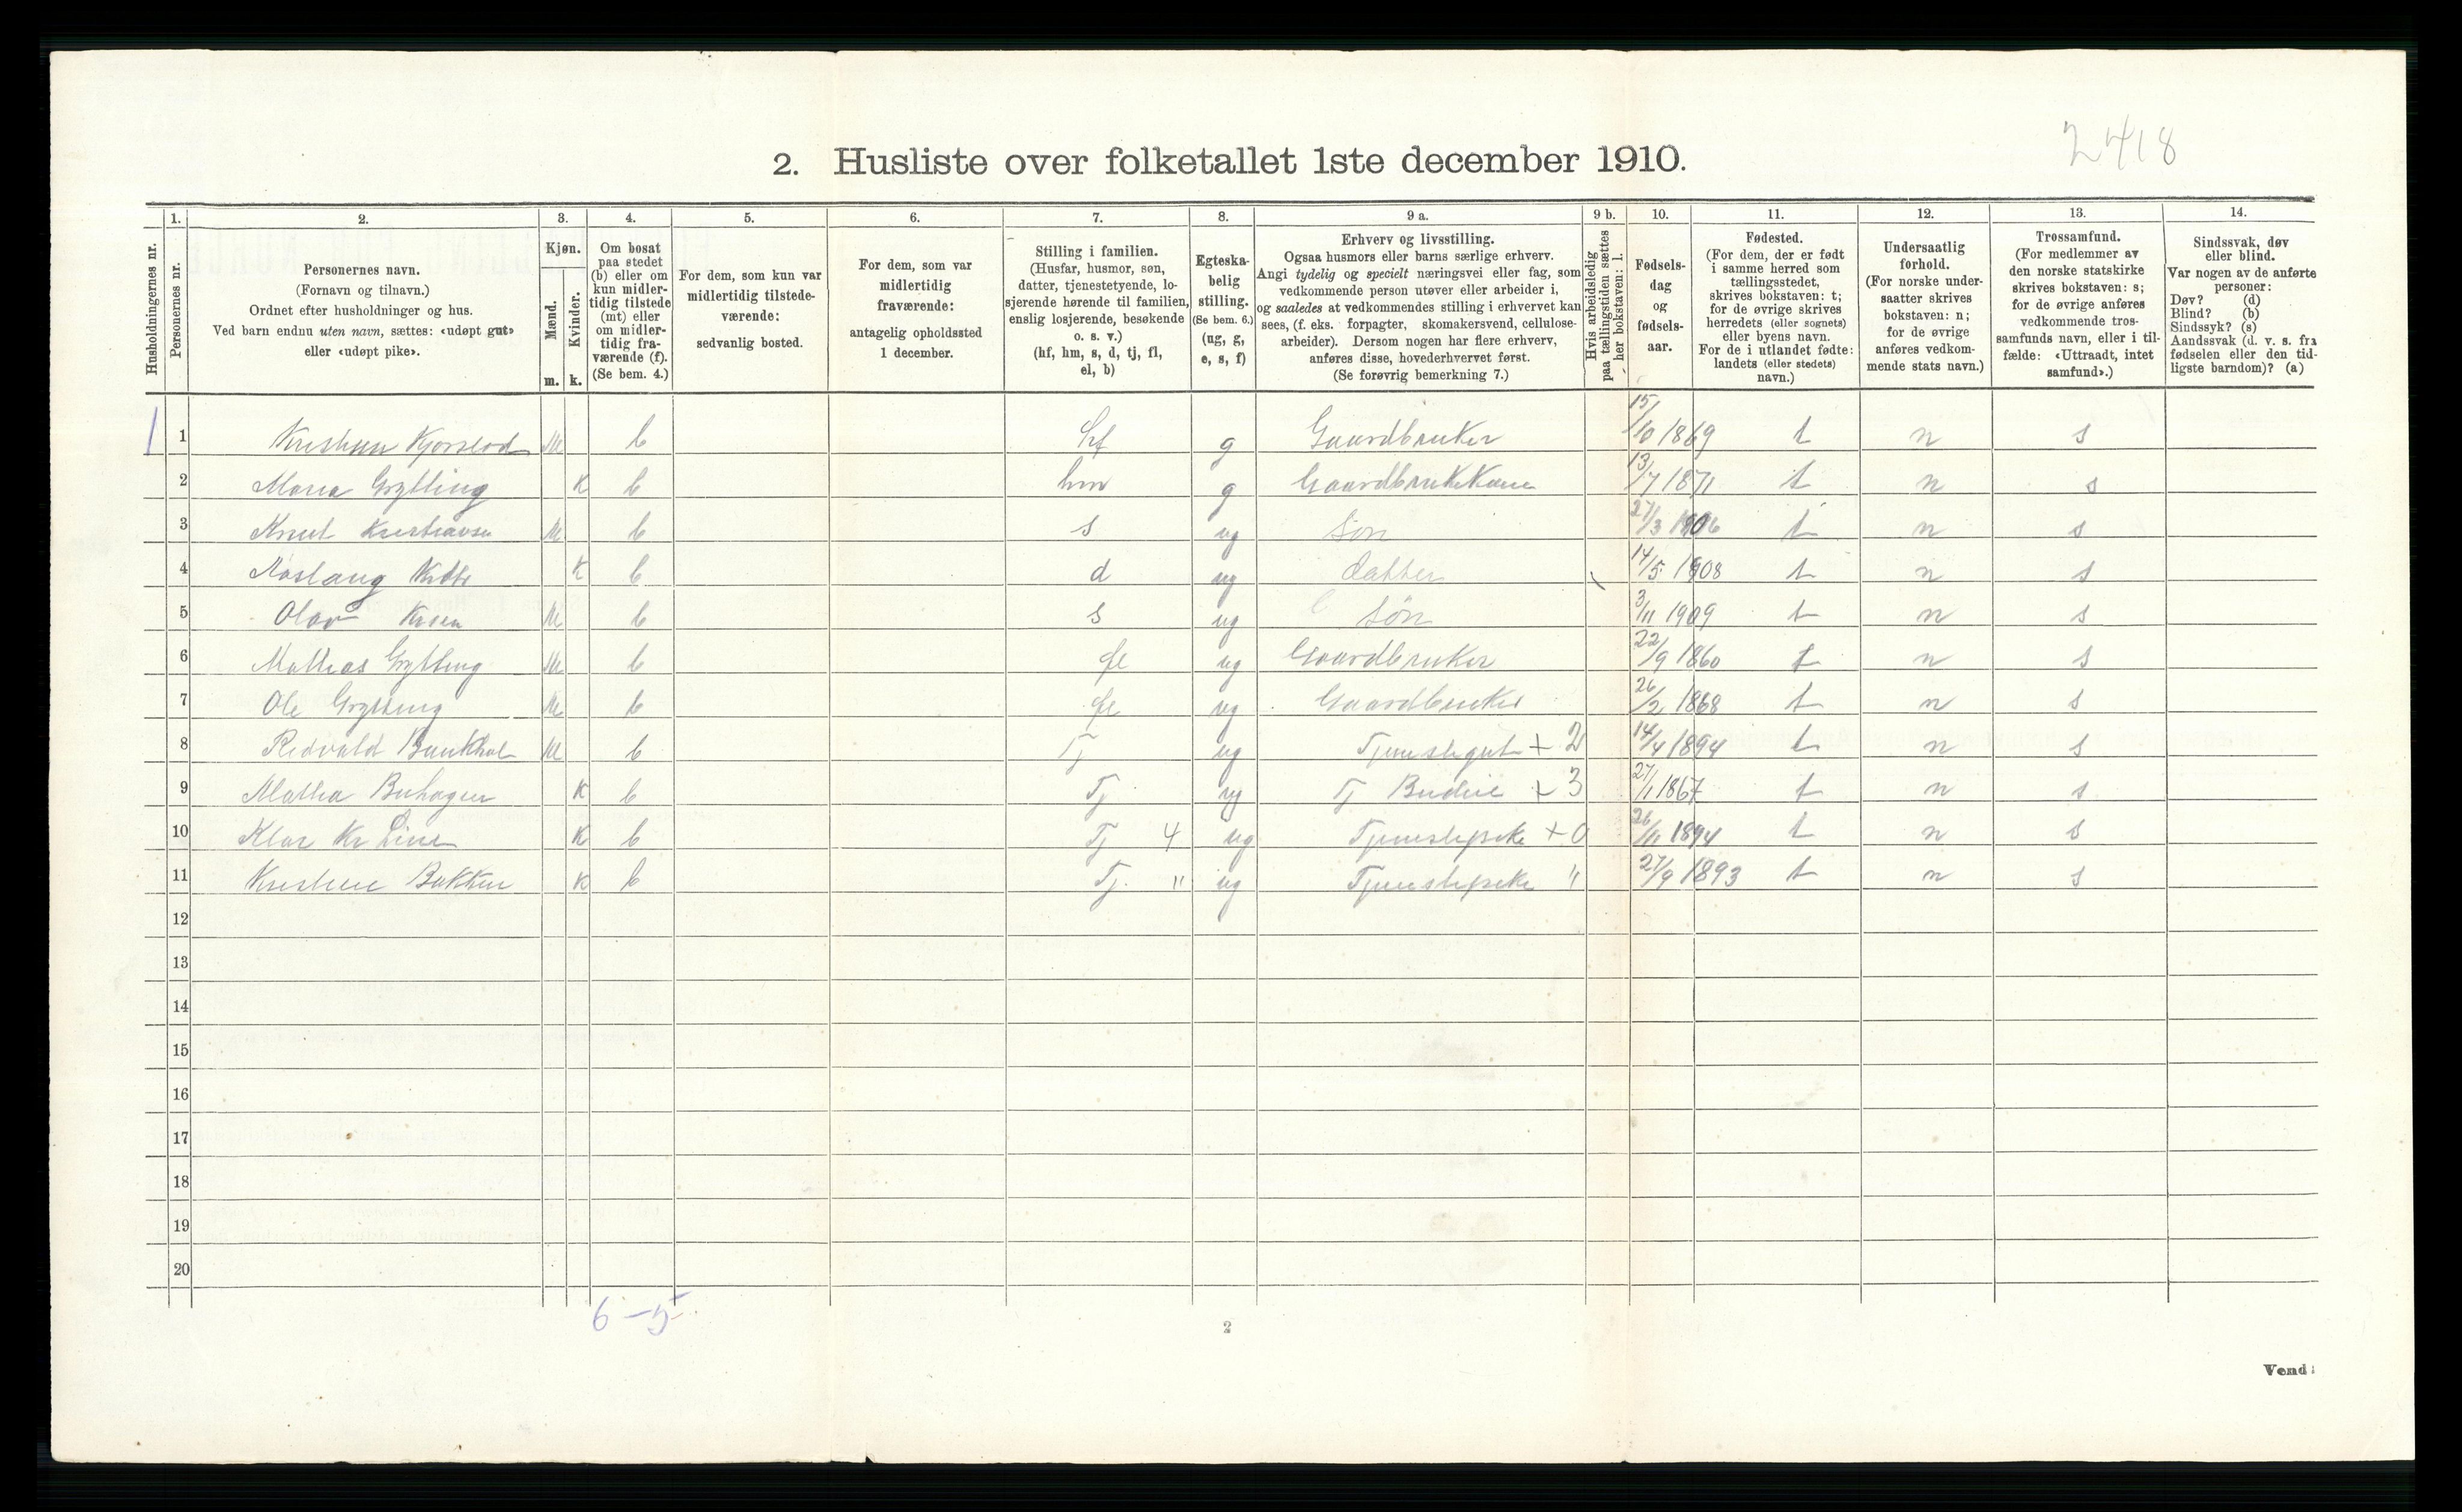 2418
2. Husliste over folketallet 1ste december 1910.
Husholdningernes nr.
1.
Personernes nr.
2.
Personernes navn.
(Fornavn og tilnavn.)
Ordnet efter husholdninger og hus.
Ved barn endnu uten navn, sættes: «udøpt gut»
eller «udøpt pike».
3.
Kjøn.
Mænd.
m.
Kvinder.
k.
4.
Om bosat
paa stedet
(b) eller om
kun midler-
tidig tilstede
(mt) eller
om midler-
tidig fra-
værende (f).
(Se bem. 4.)
5.
For dem, som kun var
midlertidig tilstede-
værende:
sedvanlig bosted.
6.
For dem, som var
midlertidig
fraværende:
antagelig opholdssted
1 december.
7.
Stilling i familien.
(Husfar, husmor, søn,
datter, tjenestetyende, lo-
sjerende hørende til familien,
enslig losjerende, besøkende
o. s. v.)
(hf, hm, s, d, tj, fl,
el, b)
8.
Egteska-
belig
stilling.
(Se bem. 6.)
(ug, g,
e, s, f)
9 a.
Erhverv og livsstilling.
Ogsaa husmors eller barns særlige erhverv.
Angi tydelig og specielt næringsvei eller fag, som
vedkommende person utøver eller arbeider i,
og saaledes at vedkommendes stilling i erhvervet kan
sees, (f. eks. forpagter, skomakersvend, cellulose-
arbeider). Dersom nogen har flere erhverv,
anføres disse, hovederhvervet først.
(Se forøvrig bemerkning 7.)
9 b.
Hvis arbeidsledig
paa tællingstiden sættes
her bokstaven: l.
10.
Fødsels-
dag
og
fødsels-
aar.
11.
Fødested.
(For dem, der er født
i samme herred som
tællingsstedet,
skrives bokstaven: t;
for de øvrige skrives
herredets (eller sognets)
eller byens navn.
For de i utlandet fødte:
landets (eller stedets)
navn.)
12.
Undersaatlig
forhold.
(For norske under-
saatter skrives
bokstaven: n;
for de øvrige
anføres vedkom-
mende stats navn.)
13.
Trossamfund.
(For medlemmer av
den norske statskirke
skrives bokstaven: s;
for de øvrige anføres
vedkommende tros-
samfunds navn, eller i til-
fælde: «Uttraadt, intet
samfund».)
14.
Sindssvak, døv
eller blind.
Var nogen av de anførte
personer:
Døv? (d)
Blind? (b)
Sindssyk? (s)
Aandssvak (d. v. s. fra
fødselen eller den tid-
ligste barndom)? (a)
1 1 M b hf g Gaardbruker 15/10 1869 t n s
2 Maria Grytting K b hm g Gaardbrukerkone 13/7 1871 t n s
3 Knut M b s ug Søn 27/3 1906 t n s
4 Aaslaug K b d ug datter 14/5 1908 t n s
5 Olav M b s ug Søn 3/11 1909 t n s
6 Mathias Grytting M b fl ug Gaardbruker 22/9 1860 t n s
7 Ole Grytting M b fl ug Gaardbruker 26/2 1868 t n s
8 M b Tj ug Tjenestegut + 2 14/4 1894 t n s
9 K b Tj ug Tj Budeie + 3 27/1 1867 t n s
10 K b Tj 4 ug Tjenestepike + 0 26/11 1894 t n s
11 Bakken K b Tj. " ug Tjenestepike " 27/9 1893 t n s
12
13
14
15
16
17
18
19
20
6 - 5
2
Vend!